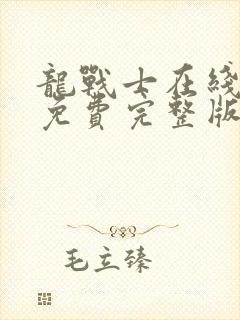 龍戰士在綫
免費完整版
毛立臻